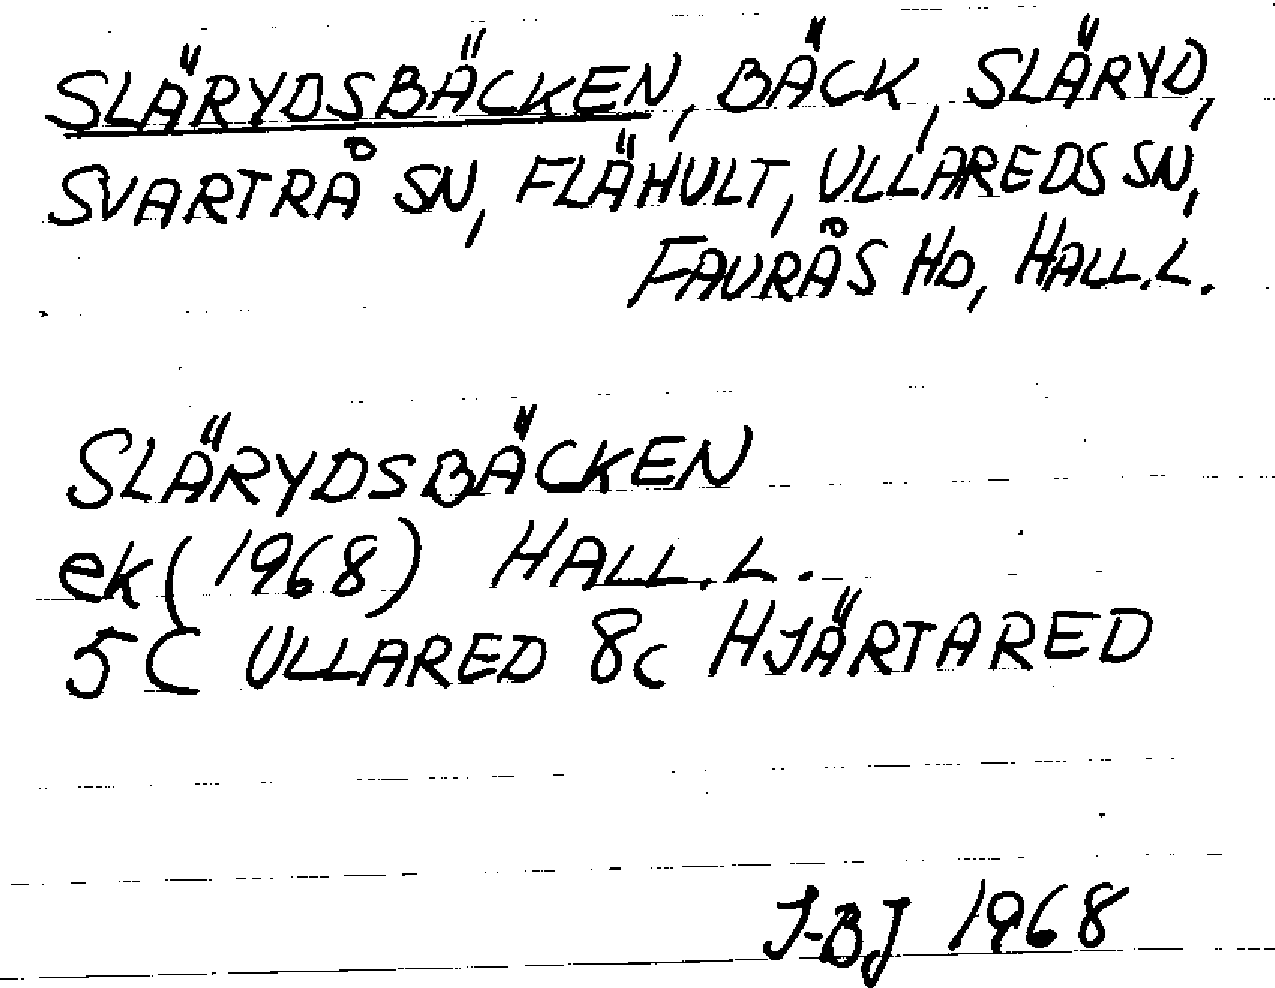 SLÄRYDSBÄCKEN, BÄCK, SLÄRYD,
SVARTRÅ SN, FLÄHULT, ULLAREDS SN,
FAURÅS HD, HALL.L.
SLÄRYDSBÄCKEN
ek(1968) HALL.L.
5C ULLARED 8c HJÄRTARED
J-BJ 1968